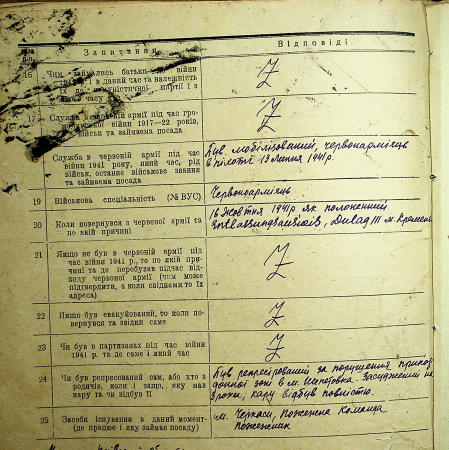 №№
п.п.
Запитання
Відповіді
16
Чим займались батьки до війни
1941 р. і в даний час та належність
їх до комуністичної партії і з
якого часу
Z
17
Служба в червоній армії під час гро-
мадянської війни 1917—22 років,
військ та займаєма посада
Z
Служба в червоній армії під час
війни 1941 року, який час, рід
військ, останнє військове звання
та займаєма посада
Був мобілізований, червоноармієць
в піхоті 13 липня 1941р.
19
Військова спеціальність (№ ВУС)
Червоноармієць
20
Коли повернувся з червоної армії та
по якій причині
16 Жовтня 1941р як полонений
Entlassungsanschais, Dulag III м. Кремен
21
Якщо не був в червоній армії під
час війни 1941 р., то по якій при-
чині та де перебував підчас від-
ходу червоної армії (чим може
підтвердити, а коли свідками то їх
адреса)
Z
22
Якщо був евакуйований, то коли по-
вернувся та звідки саме
Z
23
Чи був в партизанах під час війни
1941 р. та де саме і який час
Z
24
Чи був репресрований сам, або хто з
родичів, коли і защо, яку мав
кару та чи відбув її
Був репресірований за порушення прикор
донної зони в м. Шепетовка. Засуджений на
3 роки; кару відбув повністю.
25
Засоби існування в даний момент-
(де працює і яку займає посаду)
м. Черкаси, Пожежна Команда
Пожежник